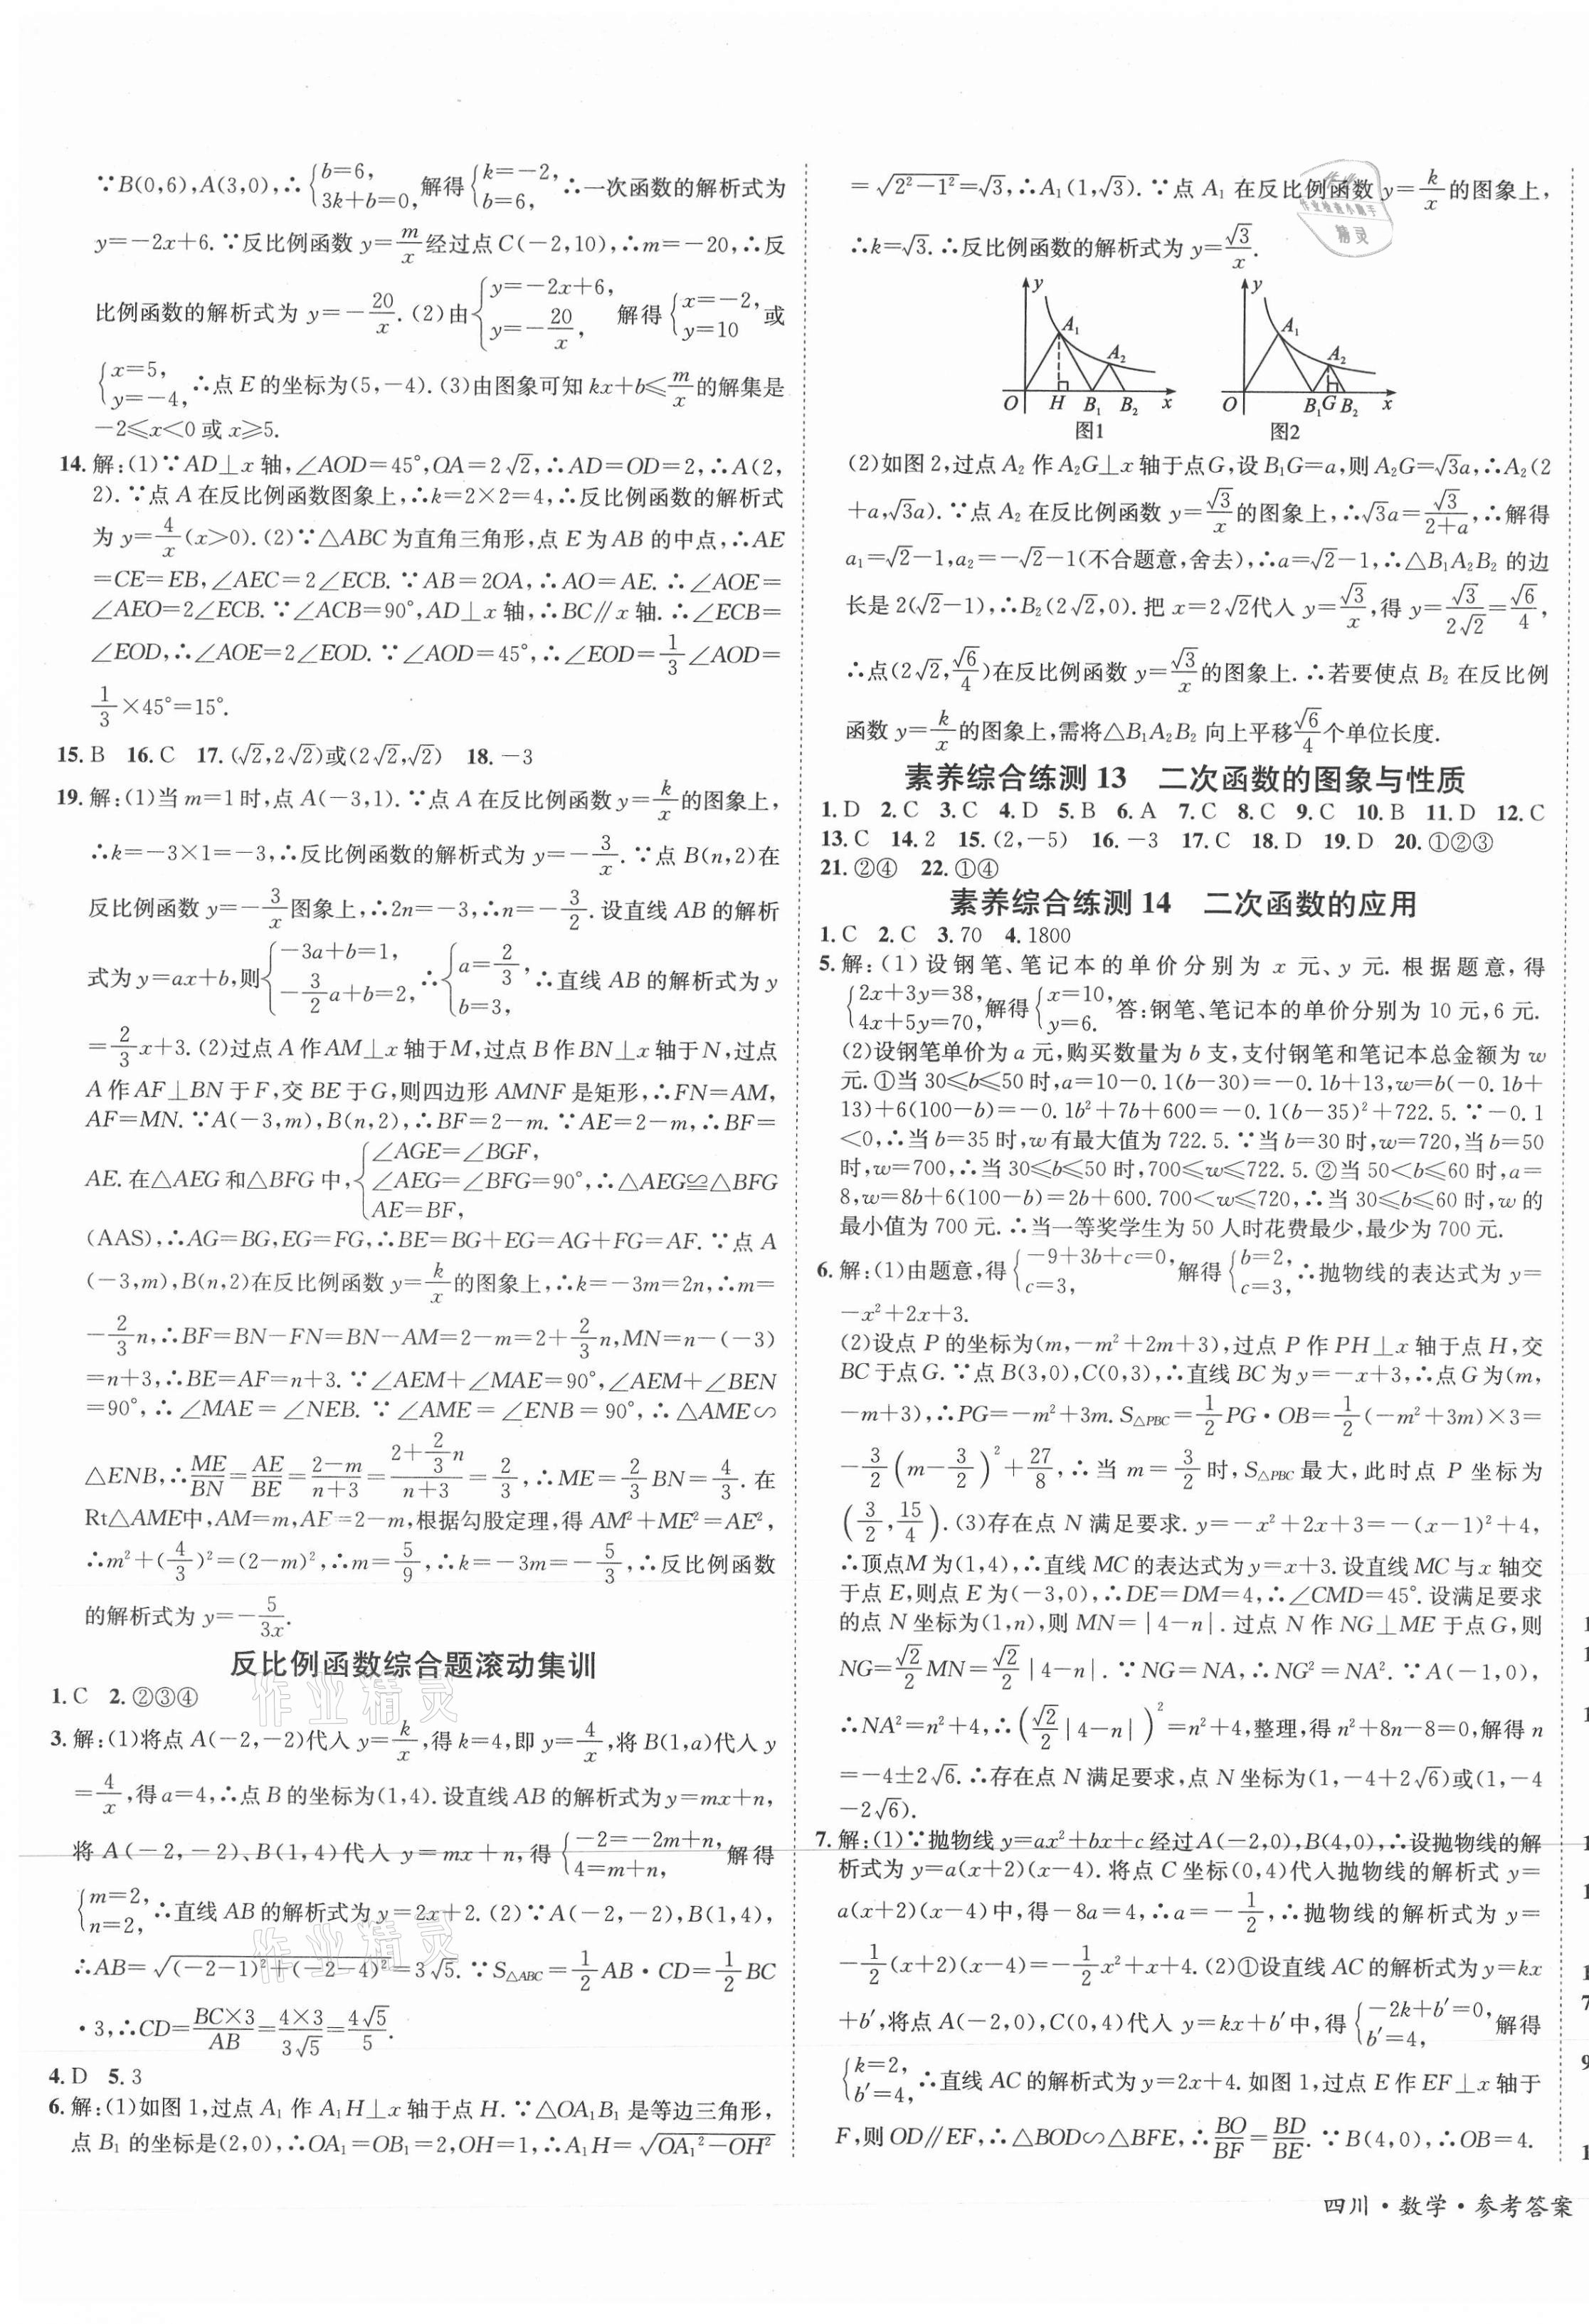 ∵B(0,6),A(3,0),∴{b=6, 3k+b=0, 解得{k=-2, b=6, ∴一次函数的解析式为
y=-2x+6.∵反比例函数 y=m/x 经过点C(-2,10),∴m=-20,∴反
比例函数的解析式为 y=-20/x.(2)由{y=-2x+6, y=-20/x, 解得{x=-2, y=10 或
{x=5, y=-4, ∴点E的坐标为(5,-4).(3)由图象可知 kx+b≤m/x 的解集是
-2≤x<0 或 x≥5.
14.解:(1)∵AD⊥x 轴,∠AOD=45°,OA=2√2,∴AD=OD=2,∴A(2,
2).∵点 A 在反比例函数图象上,∴k=2×2=4,∴反比例函数的解析式
为 y=4/x(x>0).(2)∵△ABC为直角三角形,点 E 为AB 的中点,∴AE
=CE=EB,∠AEC=2∠ECB.∵AB=2OA,∴AO=AE.∴∠AOE=
∠AEO=2∠ECB.∵∠ACB=90°,AD⊥x 轴,∴BC∥x 轴.∴∠ECB=
∠EOD,∴∠AOE=2∠EOD.∵∠AOD=45°,∴∠EOD=1/3∠AOD=
1/3×45°=15°.
15. B 16. C 17. (√2,2√2)或(2√2,√2) 18. -3
19.解:(1)当m=1时,点A(-3,1).∵点A在反比例函数 y=k/x 的图象上,
∴k=-3×1=-3,∴反比例函数的解析式为 y=-3/x.∵点 B(n,2)在
反比例函数 y=-3/x 图象上,∴2n=-3,∴n=-3/2.设直线AB的解析
式为 y=ax+b,则{-3a+b=1, -3/2a+b=2, ∴{a=2/3, b=3, ∴直线 AB 的解析式为 y
=2/3x+3.(2)过点A作AM⊥x轴于M,过点B作BN⊥x轴于N,过点
A作AF⊥BN于F,交BE于G,则四边形AMNF是矩形,∴FN=AM,
AF=MN.∵A(-3,m),B(n,2),∴BF=2-m.∵AE=2-m,∴BF=
AE.在△AEG和△BFG中,{∠AGE=∠BGF, ∠AEG=∠BFG=90°, AE=BF, ∴△AEG≌△BFG
(AAS),∴AG=BG,EG=FG,∴BE=BG+EG=AG+FG=AF.∵点A
(-3,m),B(n,2)在反比例函数 y=k/x 的图象上,∴k=-3m=2n,∴m=
-2/3n,∴BF=BN-FN=BN-AM=2-m=2+2/3n,MN=n-(-3)
=n+3,∴BE=AF=n+3.∵∠AEM+∠MAE=90°,∠AEM+∠BEN
=90°,∴∠MAE=∠NEB.∵∠AME=∠ENB=90°,∴△AME∽
△ENB,∴ME/BN=AE/BE=(2-m)/(n+3)=(2+2/3n)/(n+3)=2/3,∴ME=2/3BN=4/3.在
Rt△AME中,AM=m,AE=2-m,根据勾股定理,得 AM²+ME²=AE²,
∴m²+(4/3)²=(2-m)²,∴m=5/9,∴k=-3m=-5/3,∴反比例函数
的解析式为 y=-5/3x.
反比例函数综合题滚动集训
1. C 2. ②③④
3.解:(1)将点 A(-2,-2)代入 y=k/x,得 k=4,即 y=4/x,将B(1,a)代入 y
=4/x,得a=4,∴点B的坐标为(1,4).设直线AB的解析式为y=mx+n,
将 A(-2,-2)、B(1,4)代入 y=mx+n,得{-2=-2m+n, 4=m+n, 解得
{m=2, n=2, ∴直线AB的解析式为y=2x+2.(2)∵A(-2,-2),B(1,4),
∴AB=√((-2-1)²+(-2-4)²)=3√5.∵S△ABC=1/2AB·CD=1/2BC
·3,∴CD=BC×3/AB=4×3/3√5=4√5/5.
4. D 5. 3
6.解:(1)如图1,过点A₁作A₁H⊥x轴于点H.∵△OA₁B₁是等边三角形,
点B₁的坐标是(2,0),∴OA₁=OB₁=2,OH=1,∴A₁H=√(OA₁²-OH²)
=√(2²-1²)=√3,∴A₁(1,√3).∵点 A₁ 在反比例函数 y=k/x 的图象上,
∴k=√3.∴反比例函数的解析式为 y=√3/x.
y A₁ A₂ O H B₁ B₂ x
图1
y A₁ A₂ O B₁ G B₂ x
图2
(2)如图2,过点A₂作A₂G⊥x轴于点G,设B₁G=a,则A₂G=√3a,∴A₂(2
+a,√3a).∵点A₂在反比例函数 y=√3/x 的图象上,∴√3a=√3/(2+a),∴解得
a₁=√2-1,a₂=-√2-1(不合题意,舍去),∴a=√2-1,∴△B₁A₂B₂的边
长是2(√2-1),∴B₂(2√2,0).把 x=2√2代入 y=√3/x,得 y=√3/2√2=√6/4,
∴点(2√2,√6/4)在反比例函数 y=√3/x 的图象上.∴若要使点 B₂ 在反比例
函数 y=k/x 的图象上,需将△B₁A₂B₂向上平移√6/4个单位长度.
素养综合练测 13 二次函数的图象与性质
1. D 2. C 3. C 4. D 5. B 6. A 7. C 8. C 9. C 10. B 11. D 12. C
13. C 14. 2 15. (2,-5) 16. -3 17. C 18. D 19. D 20. ①②③
21. ②④ 22. ①④
素养综合练测 14 二次函数的应用
1. C 2. C 3. 70 4. 1800
5.解:(1)设钢笔、笔记本的单价分别为 x 元、y 元.根据题意,得
{2x+3y=38, 4x+5y=70, 解得{x=10, y=6. 答:钢笔、笔记本的单价分别为10元,6元.
(2)设钢笔单价为 a 元,购买数量为 b 支,支付钢笔和笔记本总金额为 w
元.①当30≤b≤50时,a=10-0.1(b-30)=-0.1b+13,w=b(-0.1b+
13)+6(100-b)=-0.1b²+7b+600=-0.1(b-35)²+722.5.∵-0.1
<0,∴当b=35时,w有最大值为722.5.∵当b=30时,w=720,当b=50
时,w=700,∴当30≤b≤50时,700≤w≤722.5.②当50<b≤60时,a=
8,w=8b+6(100-b)=2b+600.700<w≤720,∴当30≤b≤60时,w的
最小值为700元.∴当一等奖学生为50人时花费最少,最少为700元.
6.解:(1)由题意,得{-9+3b+c=0, c=3, 解得{b=2, c=3, ∴抛物线的表达式为 y=
-x²+2x+3.
(2)设点 P 的坐标为(m,-m²+2m+3),过点 P 作 PH⊥x 轴于点 H,交
BC于点G.∵点B(3,0),C(0,3),∴直线BC为y=-x+3,∴点G为(m,
-m+3),∴PG=-m²+3m.S△PBC=1/2PG·OB=1/2(-m²+3m)×3=
-3/2(m-3/2)²+27/8,∴当 m=3/2时,S△PBC最大,此时点 P 坐标为
(3/2,15/4).(3)存在点 N 满足要求.y=-x²+2x+3=-(x-1)²+4,
∴顶点M为(1,4),∴直线MC的表达式为y=x+3.设直线MC与x轴交
于点E,则点E为(-3,0),∴DE=DM=4,∴∠CMD=45°.设满足要求
的点N坐标为(1,n),则MN=|4-n|.过点N作NG⊥ME于点G,则
NG=√2/2MN=√2/2|4-n|.∵NG=NA,∴NG²=NA².∵A(-1,0),
∴NA²=n²+4,∴(√2/2|4-n|)²=n²+4,整理,得n²+8n-8=0,解得n
=-4±2√6.∴存在点N满足要求,点N坐标为(1,-4+2√6)或(1,-4
-2√6).
7.解:(1)∵抛物线y=ax²+bx+c经过A(-2,0),B(4,0),∴设抛物线的解
析式为 y=a(x+2)(x-4).将点 C 坐标(0,4)代入抛物线的解析式 y=
a(x+2)(x-4)中,得-8a=4,∴a=-1/2,∴抛物线的解析式为 y=
-1/2(x+2)(x-4)=-1/2x²+x+4.(2)①设直线AC的解析式为y=kx
+b′,将点A(-2,0),C(0,4)代入 y=kx+b′中,得{-2k+b′=0, b′=4, 解得
{k=2, b′=4, ∴直线AC的解析式为y=2x+4.如图1,过点E作EF⊥x轴于
F,则OD∥EF,∴△BOD∽△BFE,∴BO/BF=BD/BE.∵B(4,0),∴OB=4.
四川·数学·参考答案
作业精灵
作业精灵
精灵